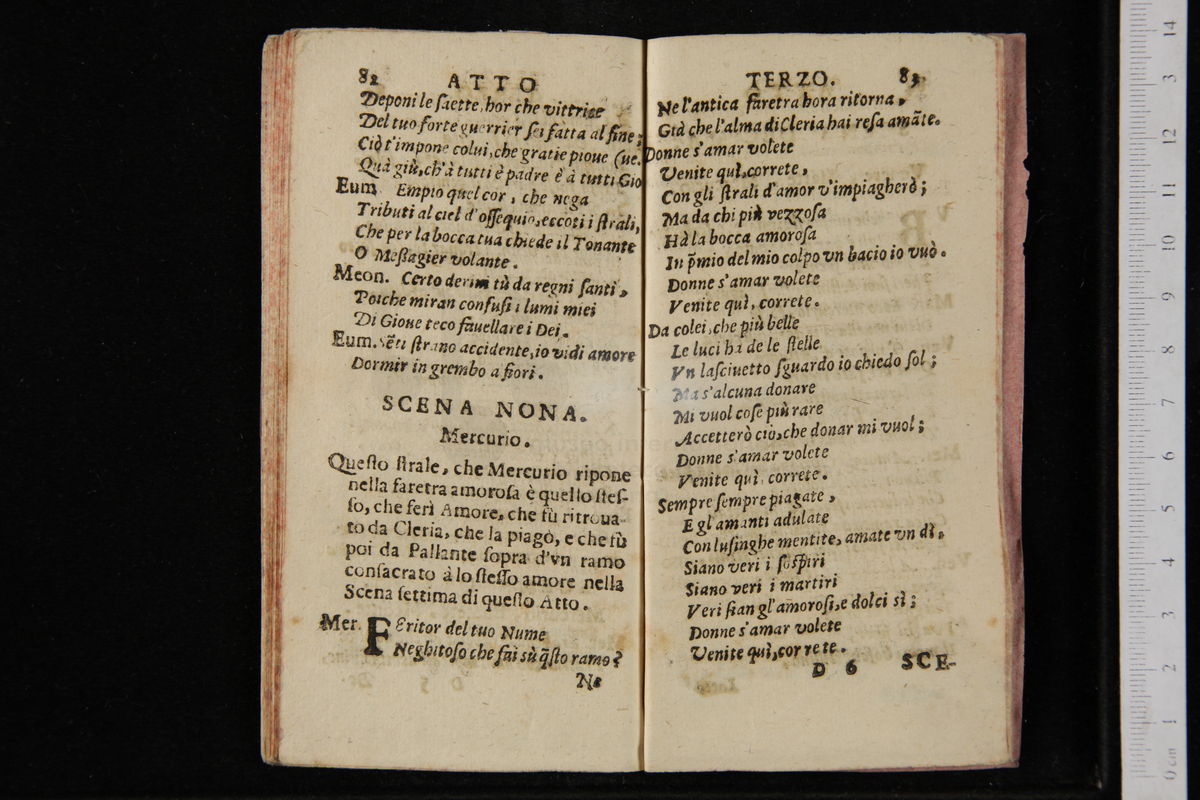 82 ATTO
Deponi le ſaette, hor che vittrice
Del tuo forte guerrier ſei fatta al fine;
Ciò t'impone colui, che gratie pioue (ue.
Quà giù, ch'à tutti è padre è à tutti Gio
Eum Empio quel cor, che nega
Tributi al ciel d'oſſequio, eccoti i ſtrali,
Che per la bocca tua chiede il Tonante
O Meſſagier volante.
Meon. Certo derini tù da regni ſanti,
Poiche miran confuſi i lumi miei
Di Gioue teco fauellare i Dei.
Eum. Sẽti ſtrano accidente, io vidi amore
Dormir in grembo a fiori.
SCENA NONA.
Mercurio.
Queſto ſtrale, che Mercurio ripone
nella faretra amoroſa è quello ſteſ-
ſo, che ferì Amore, che fù ritroua-
to da Cleria, che la piagò, e che fù
poi da Pallante ſopra d'vn ramo
conſacrato à lo ſteſſo amore nella
Scena ſettima di queſto Atto.
Mer. FEritor del tuo Nume
Neghitoſo che fai sù q̃ſto ramo?
Ne
TERZO. 83
Ne l'antica faretra hora ritorna,
Già che l'alma di Cleria hai reſa amãte.
Donne s'amar volete
Venite quì, correte,
Con gli ſtrali d'amor v'impiagherò;
Ma da chi più vezzoſa
Hà la bocca amoroſa
In p̃mio del mio colpo vn bacio io vuò.
Donne s'amar volete
Venite quì, correte.
Da colei, che più belle
Le luci ha de le ſtelle
Vn laſciuetto ſguardo io chiedo ſol;
Ma s'alcuna donare
Mi vuol coſe più rare
Accetterò ciò, che donar mi vuol;
Donne s'amar volete
Venite quì, correte.
Sempre ſempre piagate,
E gl'amanti adulate
Con luſinghe mentite, amate vn dì,
Siano veri i ſoſpiri
Siano veri i martiri
Veri ſian gl'amoroſi, e dolci sì;
Donne s'amar volete
Venite quì, correte.
D 6 SCE-